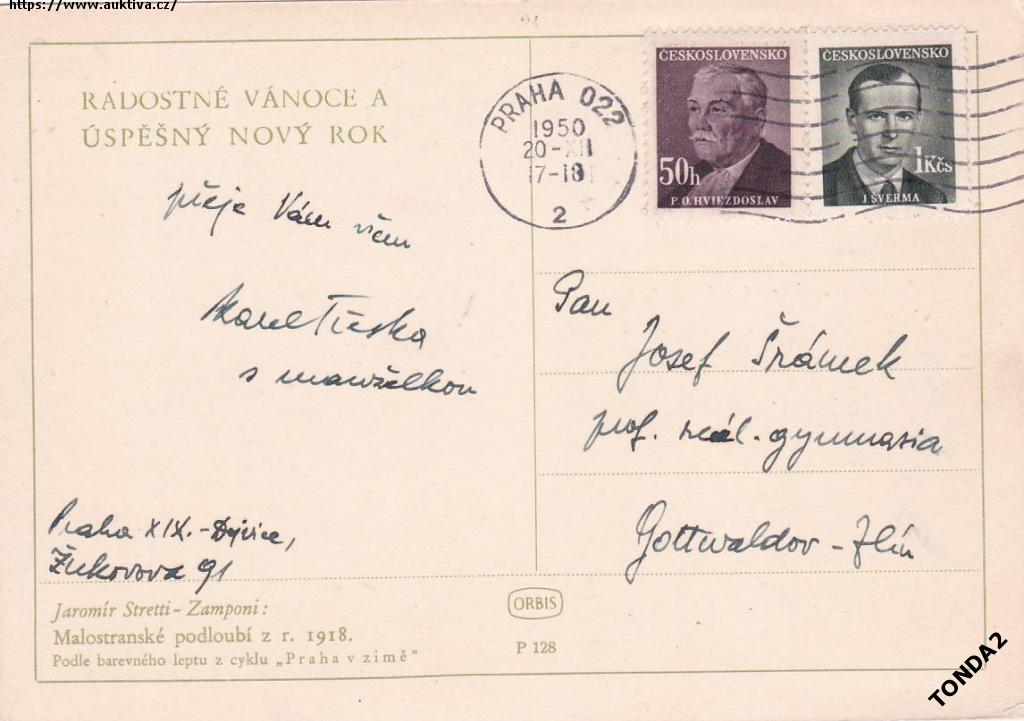 https://www.auktiva.cz/
RADOSTNÉ VÁNOCE A
ÚSPĚŠNÝ NOVÝ ROK
přeje Vám všem
Karel Třeska
s manželkou
Praha XIX.-Dejvice,
Žukovova 91
Jaromír Stretti-Zamponi:
Malostranské podloubí z r. 1918.
Podle barevného leptu z cyklu „Praha v zimě"
ORBIS
P 128
PRAHA 022
1950
20-XII
17-18
2
ČESKOSLOVENSKO
50h
P. O. HVIEZDOSLAV
ČESKOSLOVENSKO
1Kčs
J. ŠVERMA
Pan
Josef Šrámek
prof. reál. gymnasia
Gottwaldov - Zlín
TONDA2